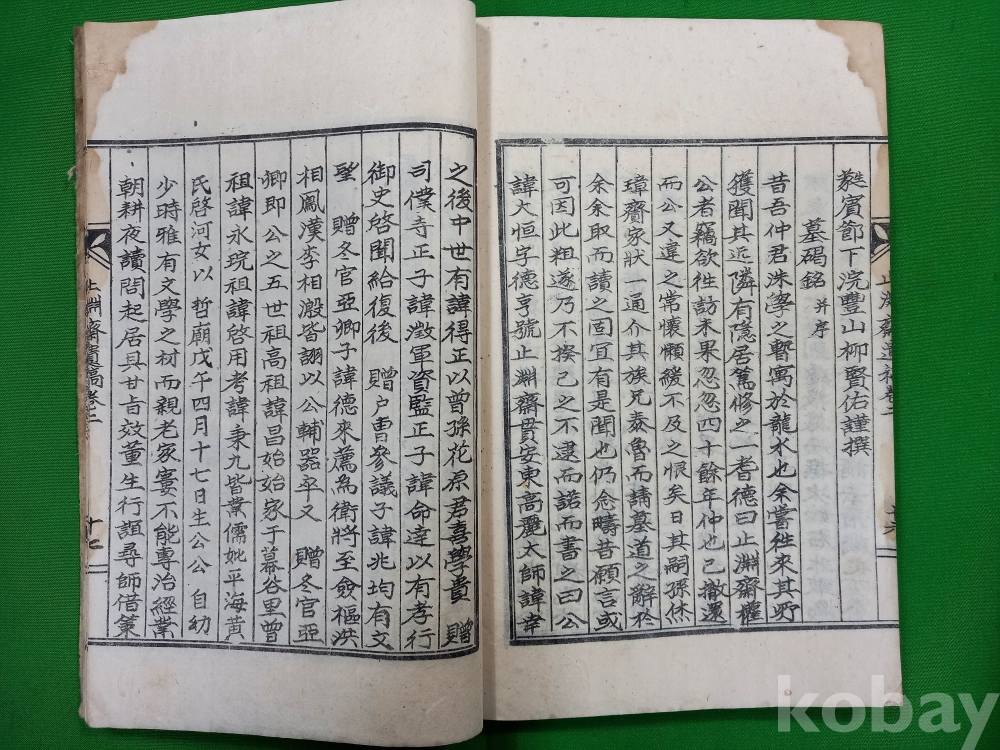 蕤賓節下浣豐山柳賢佑謹撰
墓碣銘 并序
昔吾仲君洙學之暫寓於龍水也余嘗往來其所
獲聞其近隣有隱居篤修之一耆德曰止淵齋權
公者竊欲往訪未果忽忽四十餘年仲也已撤還
而公又違之常懷懶緩不及之恨矣日其嗣孫烋
璋賫家狀一通介其族兄泰魯而請墓道之辭於
余余取而讀之固宜有是聞也仍念疇昔願言或
可因此粗遂乃不揆己之不逮而諾而書之曰公
諱大恒字德亨號止淵齋貫安東高麗太師諱幸
之後中世有諱得正以曾孫花原君喜學貴 贈
司僕寺正子諱澂軍資監正子諱命達以有孝行
御史啓聞給復後 贈户曹參議子諱兆均有文
望 贈冬官亞卿子諱德來薦為衛將至僉樞洪
相鳳漢李相溵皆詡以公輔器卒又 贈冬官亞
卿即公之五世祖高祖諱昌始始家于幕谷里曾
祖諱永琓祖諱啓用考諱秉九皆業儒妣平海黄
氏啓河女以 哲廟戊午四月十七日生公公自幼
少時雅有文學之材而親老家窶不能專治經業
朝耕夜讀問起居具甘旨效董生行誼尋師借策
止淵齋遺稿卷之二
十七
kobay